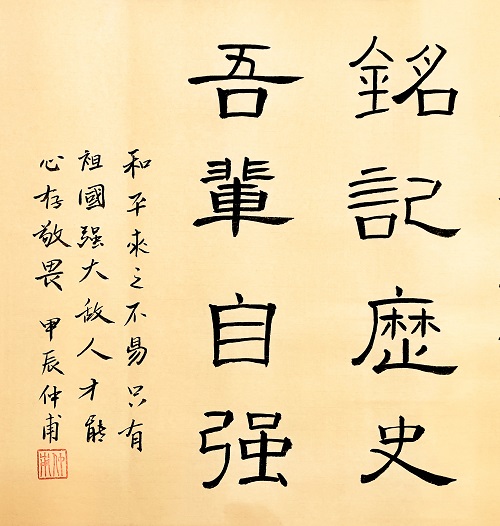 銘記歷史
吾輩自强
和平來之不易只有
祖國强大敌人才能
心存敬畏 甲辰仲甫